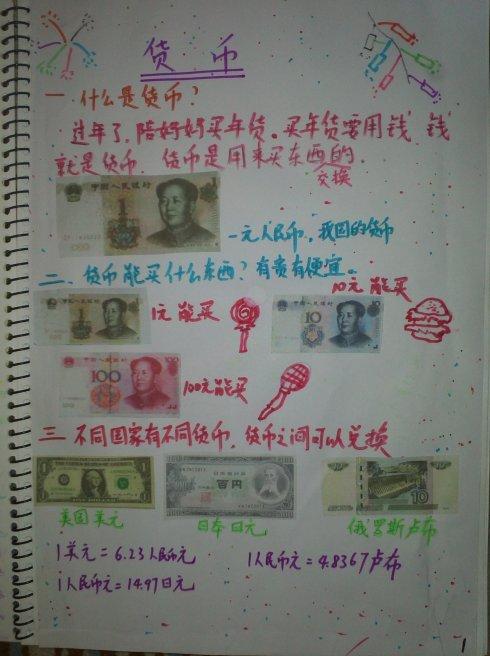 货币
一、什么是货币？
过年了，陪好好买年货。买年货要用钱，钱
就是货币，货币是用来买东西的.
交换
中国人民银行
1
一元人民币，我国的货币
二、货币能买什么东西？有贵有便宜。
1
1元能买
10
10元能买
中国人民银行
100
100
100元能买
三 不同国家有不同货币，货币之间可以兑换
1
美国美元
百円
日本日元
10
俄罗斯卢布
1美元=6.23人民币元
1人民币元=4.8367卢布
1人民币元=14.97日元
1